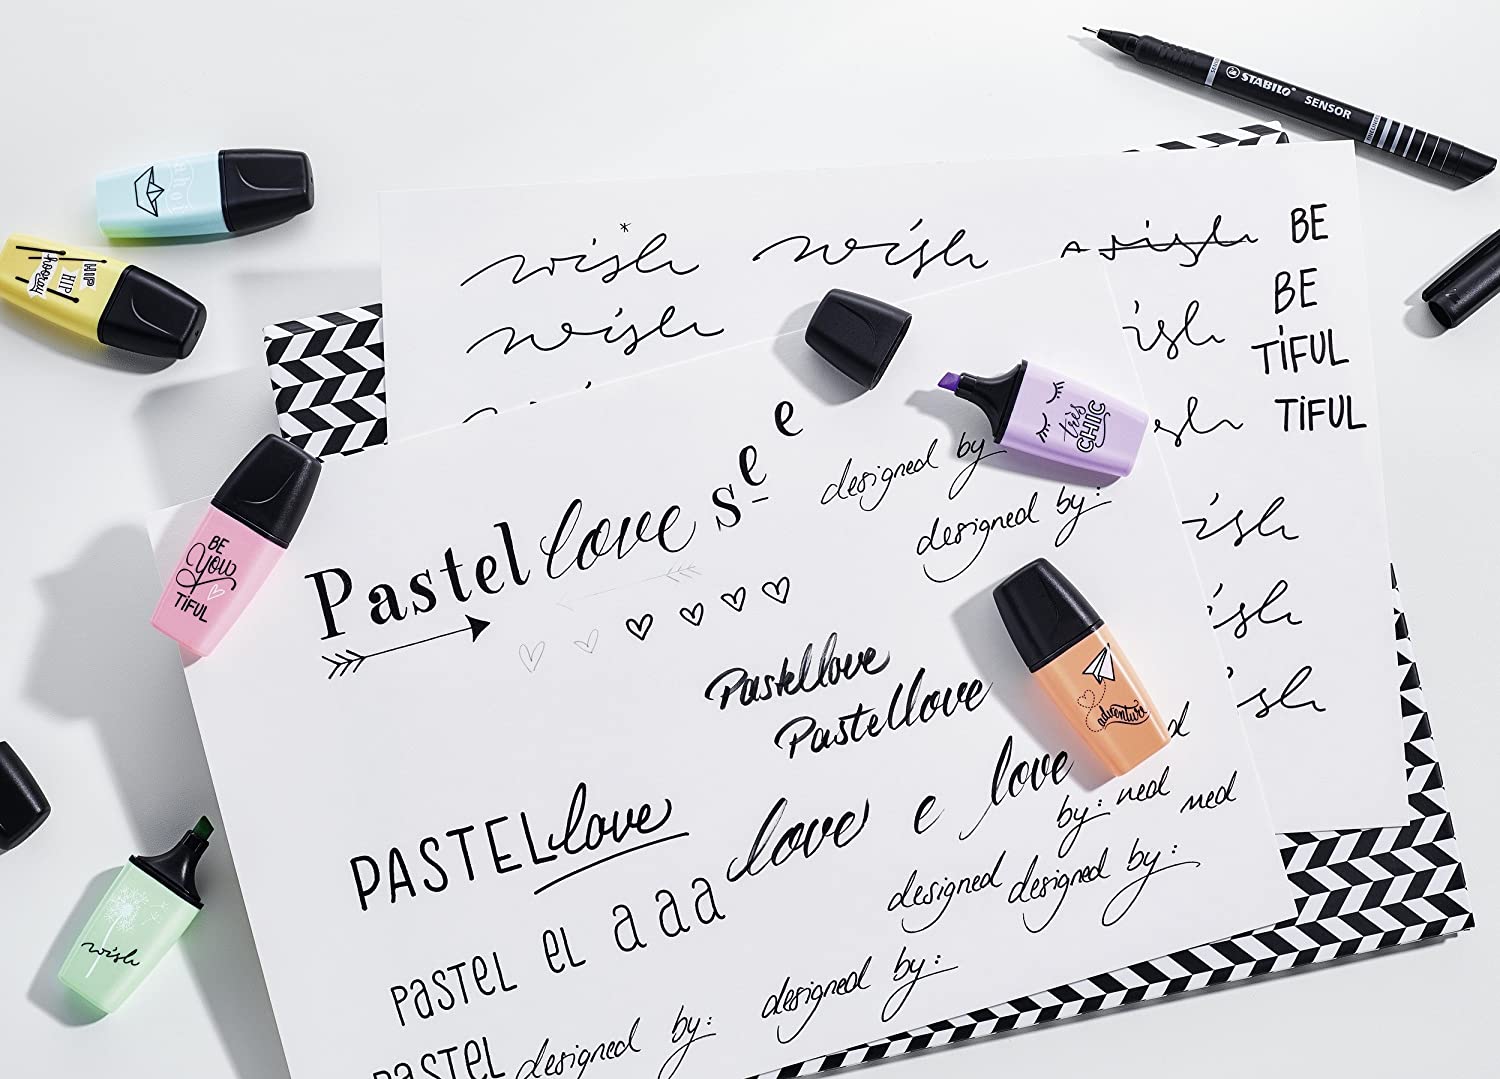 STABILO® SENSOR
ahoi
HIP
HIP
hooray
wish* wish wish BE
wish BE
TiFUL
TiFUL
très
CHIC
BE
YOU
TiFUL
Pastel love see
designed by
designed by:
Pastellove
Pastellove
adventure
PASTELlove
love e love
by: ned
ned
PaSTEL EL a a a
designed designed by:
designed by:
PaSTEL designed by:
wish